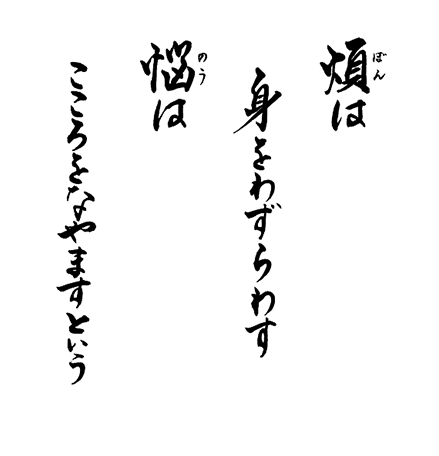 煩は
身をわずらわす
悩は
こころをなやますという